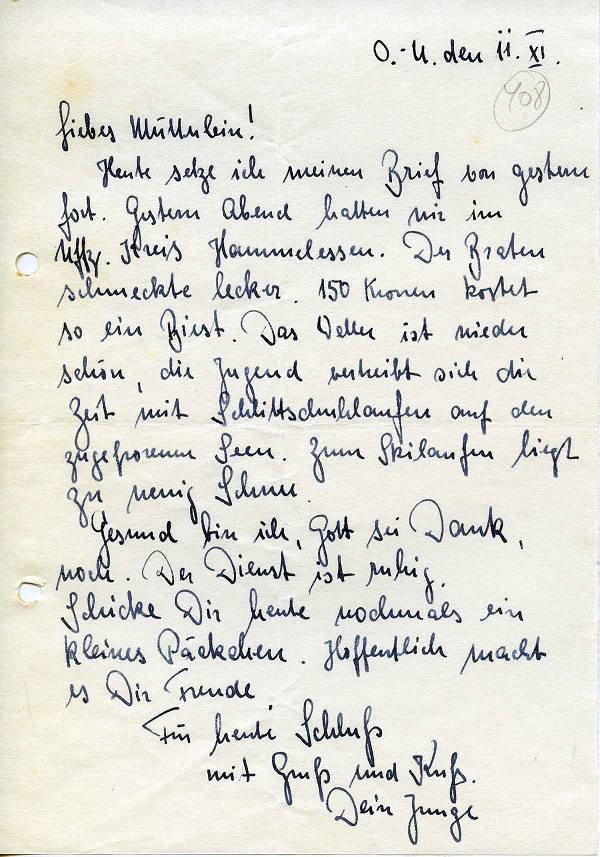 O.-U. den 11. XI.
408
Liebes Mütterlein!
Heute setze ich meinen Brief von gestern
fort. Gestern Abend hatten wir im
Uffz. Kreis Hammelessen. Der Braten
schmeckte lecker. 150 Kronen kostet
so ein Biest. Das Wetter ist wieder
schön, die Jugend vertreibt sich die
Zeit mit Schlittschuhlaufen auf den
zugefrorenen Seen. Zum Skilaufen liegt
zu wenig Schnee.
Gesund bin ich, Gott sei Dank,
noch. Der Dienst ist ruhig.
Schicke Dir heute nochmals ein
kleines Päckchen. Hoffentlich macht
es Dir Freude
Für heute Schluß
mit Gruß und Kuß.
Dein Junge